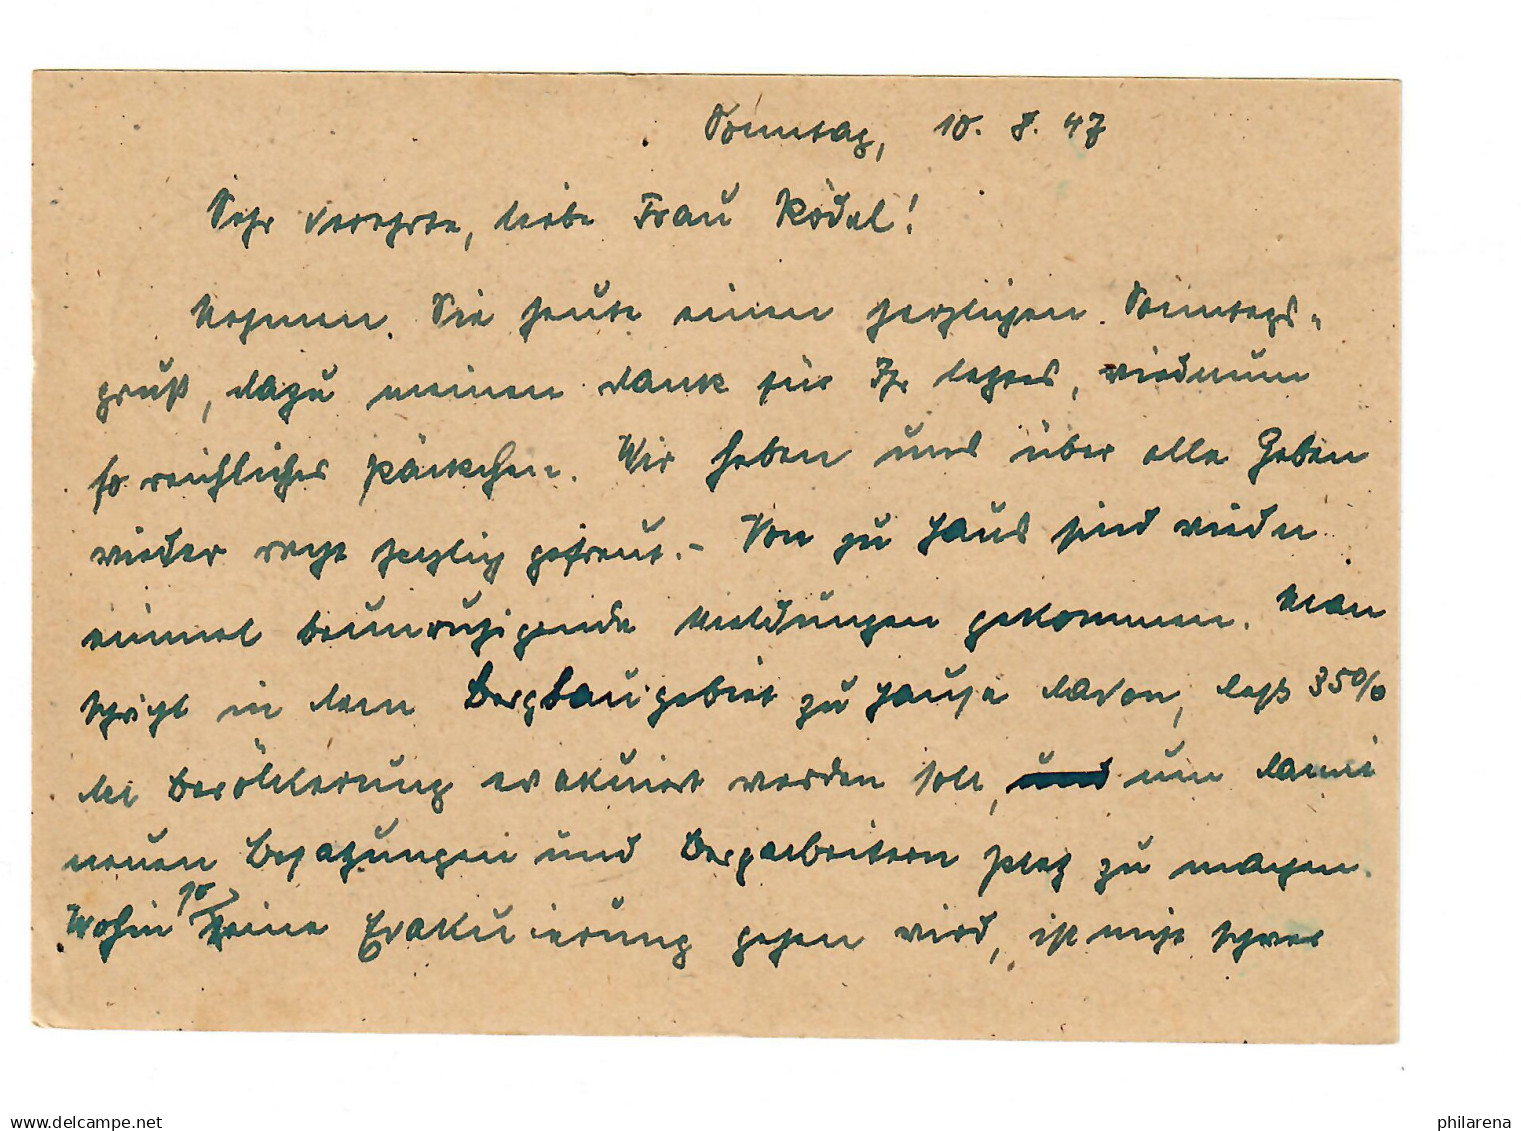 Sonntag, 10. 8. 47
Sehr verehrte, liebe Frau Ködel!
Nehmen Sie heute einen herzlichen Sonntags-
gruß, dazu meinen Dank für Ihr letztes, wiederum
so reichliches Päckchen. Wir haben uns über alle Gaben
wieder recht herzlich gefreut. – Von zu Haus sind wieder
einmal beunruhigende Meldungen gekommen. Man
spricht in dem Bergbaugebiet zu Hause davon, daß 35%
der Bevölkerung evakuiert werden soll, um damit
neuen Besatzungen und Bergarbeitern Platz zu machen.
Wohin so eine Evakuierung gehen wird, ist nicht schwer
delcampe.net
philarena